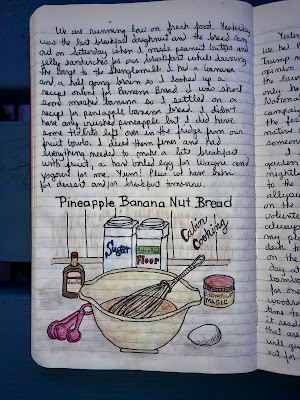 We are running low on fresh food. Yesterday
was the last breakfast doughnut and the bread ran
out on Saturday when I made peanut butter and
jelly sandwiches for our breakfast while
the barge to the I had a banana
and a half going brown so I looked up a
recipe online for Banana Bread. I was short
some mashed banana so I settled on a
recipe for pineapple banana bread. I didn't
have any crushed pineapple but I did have
some tidbits left over in the fridge from our
fruit bowls. I diced them finer and had
everything needed to make a late breakfast
with fruit, a hard boiled egg for Wayne and
yogurt for me. Yum! Plus we have some
for dessert and/or breakfast tomorrow.
Pineapple Banana Nut Bread
Cabin
Cooking
Sugar
Flour
MAGIC
Yester
we had
Trump
opinion
the
only
National
campaign
the
native
someone
garden
nightly
to the
alleyway
on the
always
my
desk to
on the
day
for one
woods
time to
it
that are
will
eat for